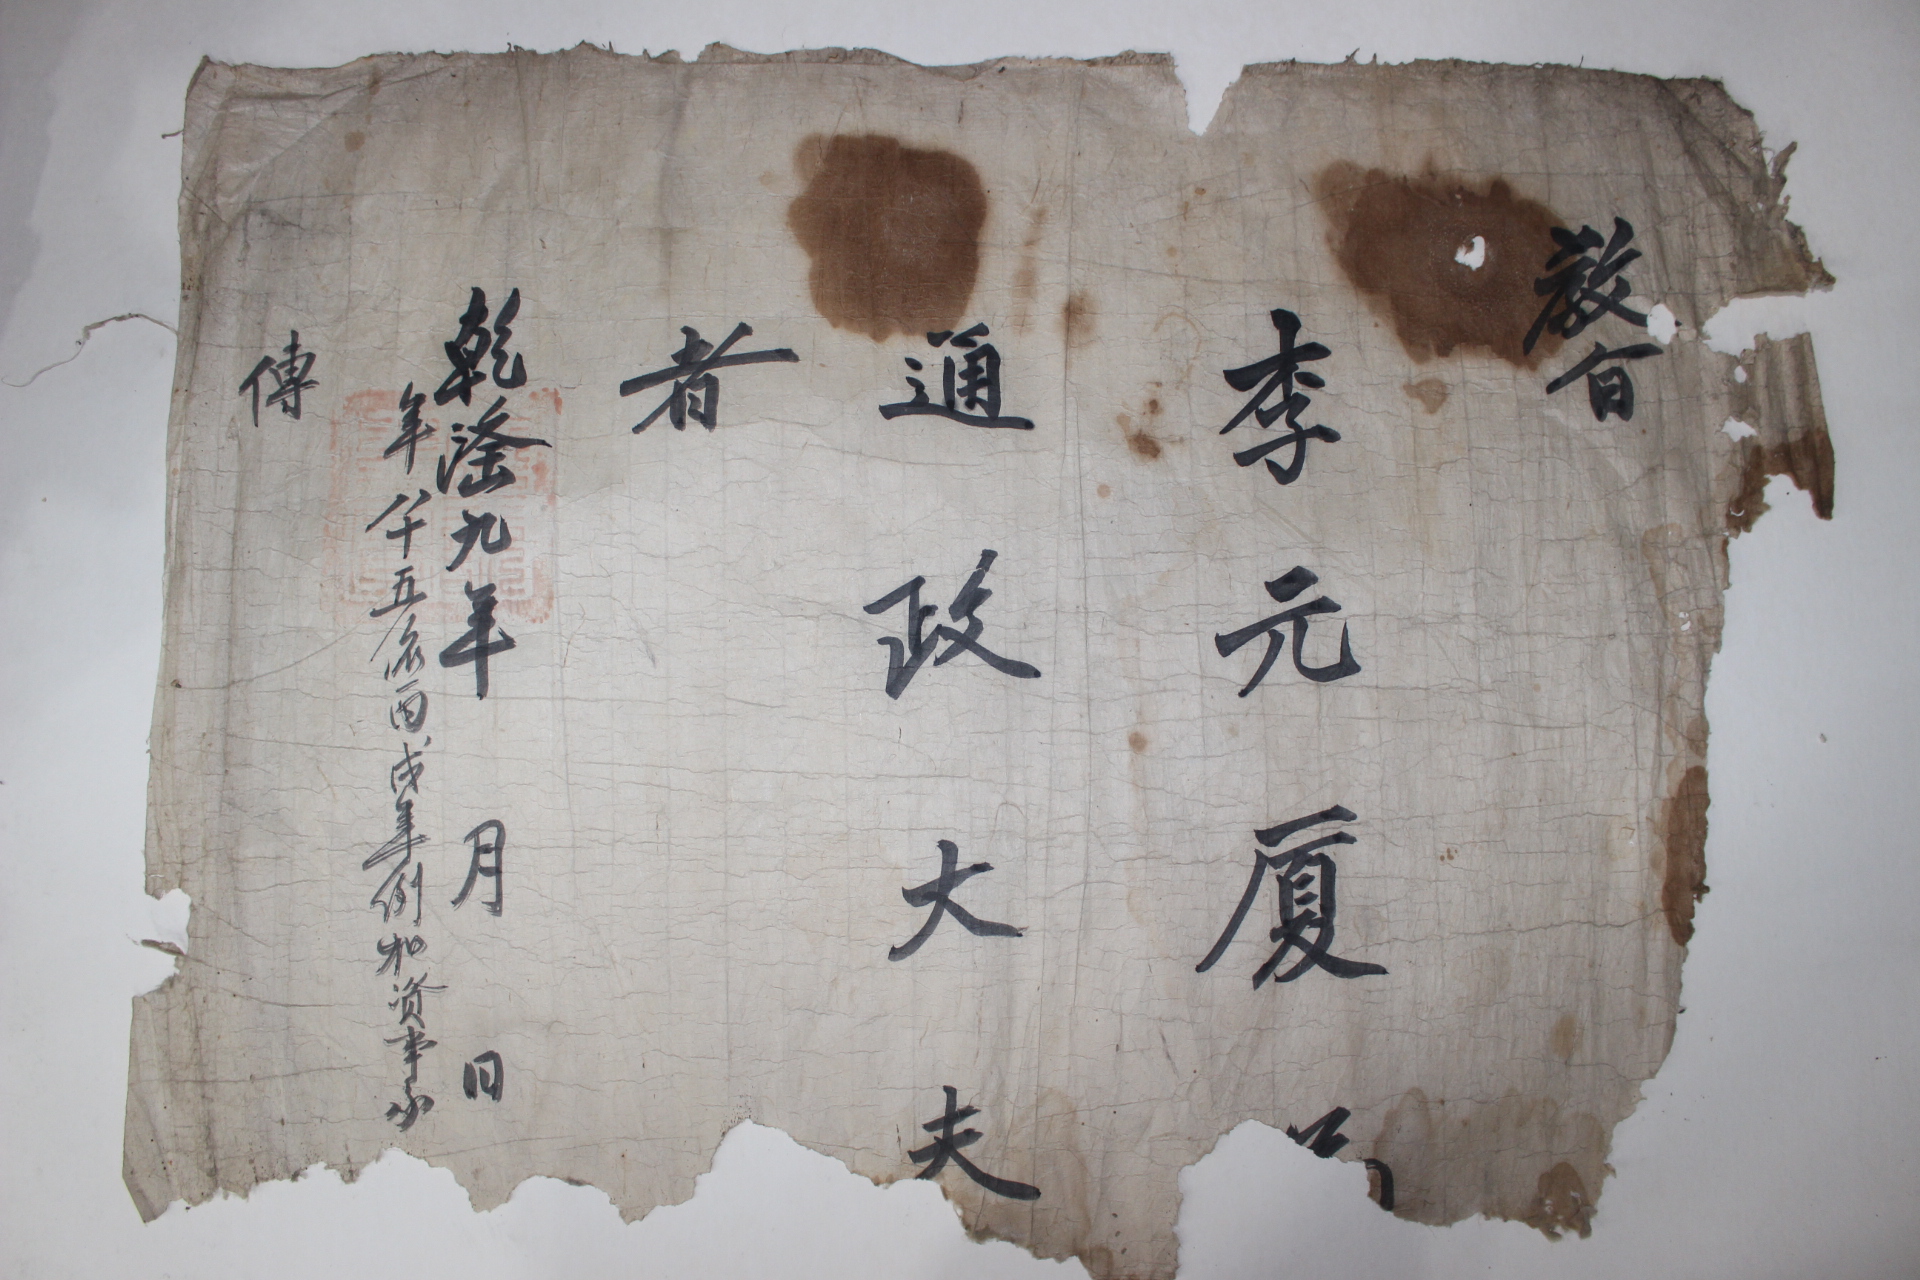 敎旨
李元厦
通政大夫
者
乾隆九年 月 日
年八十五依丙戌年例加資事承
傳